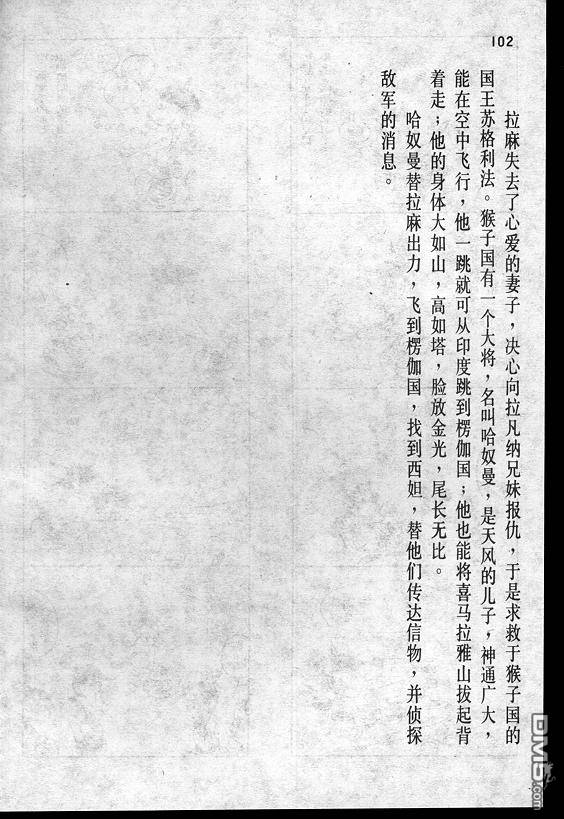 102
拉麻失去了心爱的妻子，决心向拉凡纳兄妹报仇，于是求救于猴子国的
国王苏格利法。猴子国有一个大将，名叫哈奴曼，是天风的儿子，神通广大，
能在空中飞行，他一跳就可从印度跳到楞伽国；他也能将喜马拉雅山拔起背
着走；他的身体大如山，高如塔，脸放金光，尾长无比。
哈奴曼替拉麻出力，飞到楞伽国，找到西妲，替他们传达信物，并侦探
敌军的消息。
DM5.com